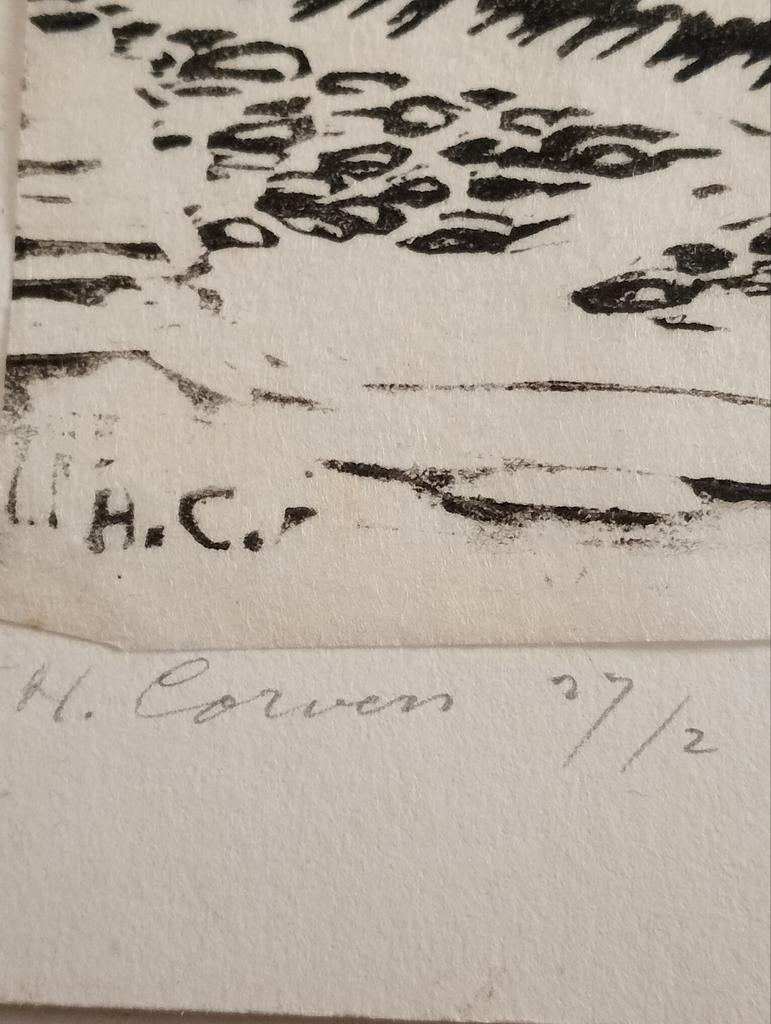 H.C.
H. Corvers 27/2